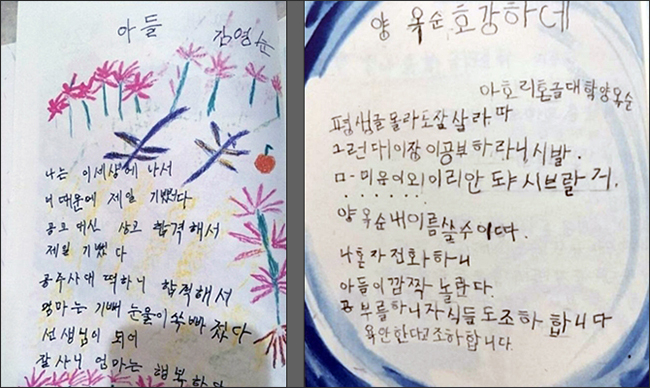 아들 김영순
나는 이세상에 나서
너때문에 제일 기뻤다
공고대신 상고 합격해서
제일 기뻤다
공주사대 떡하니 합격해서
엄마는 기뻐 눈물이 쏙 빠졌다
선생님이 되어
잘사니 엄마는
양 옥순 호강하네
평생글몰라도잘살라따
그런대이장이공부하라니시발.
이리안돠시브랄거.
양옥순내이름쓸수이따.
나혼자전화하니
아들이깜짝놀란다.
공부를하니자식들도조하합니다
욕안한다고조하합니다.